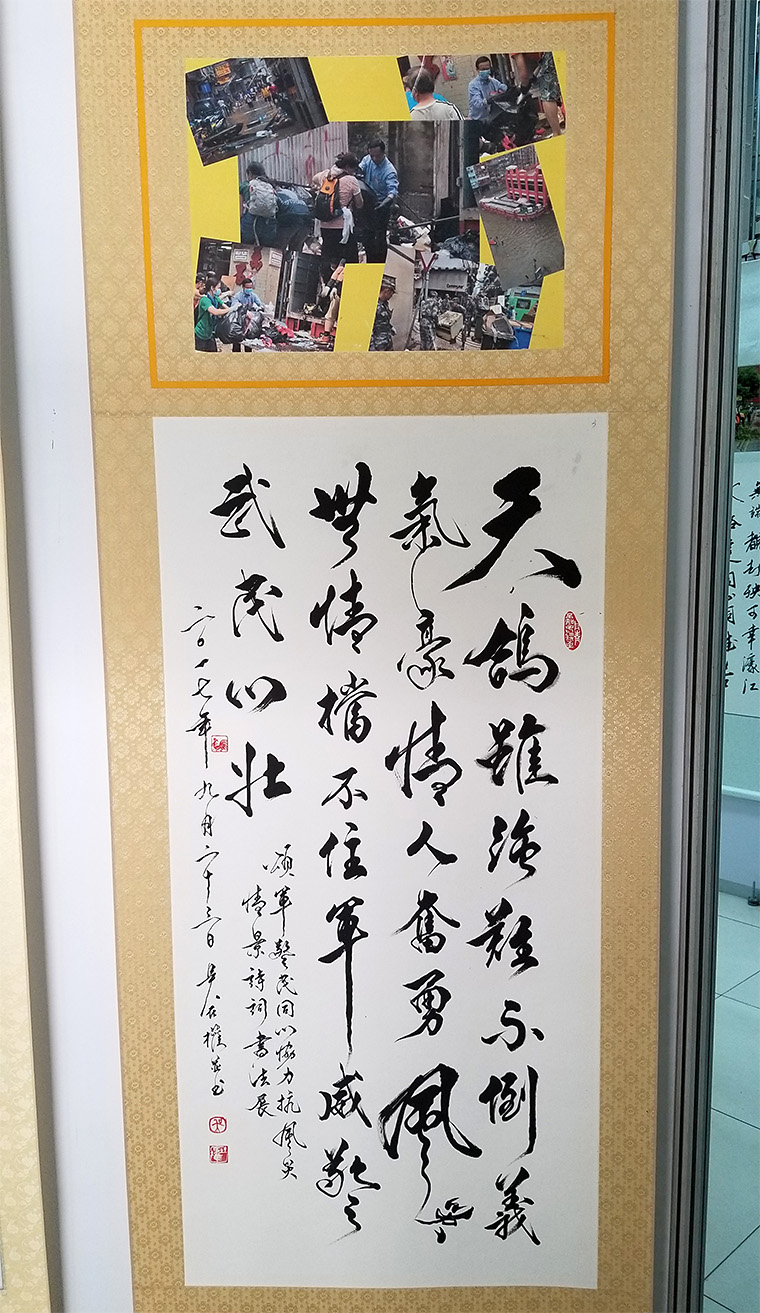 天鴿雖強難不倒義
氣豪情人奮勇風
無情擋不住軍威警
武民心壯
頌軍警民同心協力抗風災
情景詩詞書法展
二〇一七年九月二十三日